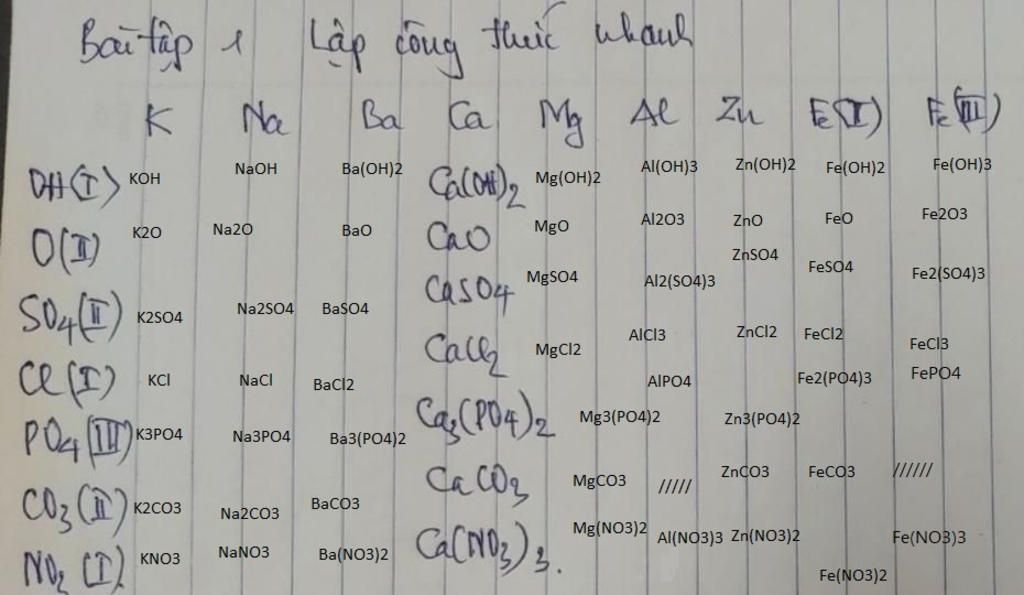 Bài tập 1 Lập công thức nhanh
K Na Ba Ca Mg Al Zn Fe(II) Fe(III)
OH(I) KOH NaOH Ba(OH)2 Ca(OH)2 Mg(OH)2 Al(OH)3 Zn(OH)2 Fe(OH)2 Fe(OH)3
O(II) K2O Na2O BaO CaO MgO Al2O3 ZnO FeO Fe2O3
SO4(II) K2SO4 Na2SO4 BaSO4 CaSO4 MgSO4 Al2(SO4)3 ZnSO4 FeSO4 Fe2(SO4)3
Cl(I) KCl NaCl BaCl2 CaCl2 MgCl2 AlCl3 ZnCl2 FeCl2 FeCl3
PO4(III) K3PO4 Na3PO4 Ba3(PO4)2 Ca3(PO4)2 Mg3(PO4)2 AlPO4 Zn3(PO4)2 Fe2(PO4)3 FePO4
CO3(II) K2CO3 Na2CO3 BaCO3 CaCO3 MgCO3 ///// ZnCO3 FeCO3 //////
NO3(I) KNO3 NaNO3 Ba(NO3)2 Ca(NO3)3. Mg(NO3)2 Al(NO3)3 Zn(NO3)2 Fe(NO3)2 Fe(NO3)3